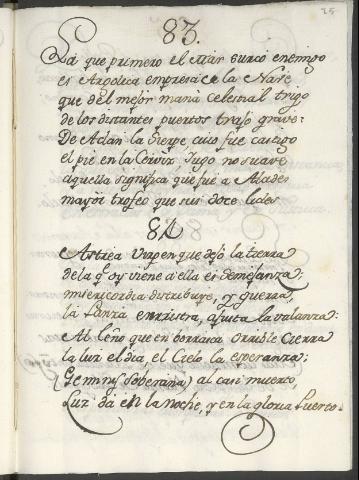 25
83.
La que primero el mar surcó enemigo
es Argolica empresa de la Nave
que del mejor maná celestial trigo
de los distantes puertos trajo grave:
De Adan la Sierpe, cuio fue castigo
el pie en la Cerviz Jugo no suave
aquella significa que fue a Alcides
mayor trofeo que sus doze lides
84
Astrea Virgen que dejó la tierra
de la q. oy viene a ella es semejanza;
misericordia destribuye, y guerra,
la Lanza enristra, ajusta la valanza:
Al Leño que en borrasca orrible Cierra
la luz el dia, el Cielo la esperanza:
(Geminis soberana) al casi muerto,
Luz da en la noche, y en la gloria Puerto.